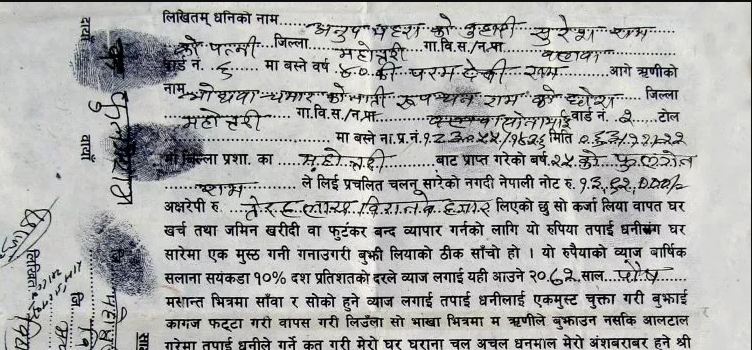 लिखितम् धनिको नाम अनुप महरा को बुहारी सुरेश राम
को पत्नी जिल्ला महोत्तरी गा.वि.स./न.पा.
वार्ड नं. ६ मा बस्ने वर्ष ४० की परम देवी राम आगे ऋणीको
नाम चमार को नाती रूपचन राम को छोरा जिल्ला
महोत्तरी गा.वि.स./न.पा. वार्ड नं. २ टोल
मा बस्ने ना.प्र.नं. मिति
जिल्ला प्रशा. का महोत्तरी बाट प्राप्त गरेको वर्ष २५ को फुलगेन
राम ले लिई प्रचलित चलन्सारेको नगदी नेपाली नोट रु. १३,९२,०००/-
अक्षरेपी रु. तेरह लाख विरानबे हजार लिएको छु सो कर्जा लिया वापत घर
खर्च तथा जमिन खरीदी वा फुटंकर बन्द व्यापार गर्नको लागि यो रुपिया तपाई धनीसंग घर
सारेमा एक मुस्ठ गनी गनाउगरी बुझी लियाको ठीक साँचो हो । यो रुपैयाको व्याज बार्षिक
सलाना सयंकडा १०% दश प्रतिशतको दरले व्याज लगाई यही आउने २०६२ साल पौष
मसान्त भित्रमा साँवा र सोको हुने व्याज लगाई तपाई धनीलाई एकमुस्ट चुक्ता गरी बुझाई
कागज फट्टा गरी वापस गरी लिउँला सो भांखा भित्रमा म ऋणीले बुझाउन नसकि आलटाल
गरेमा तपाई धनीले गर्ने कुत गरी मेरो घर घराना चल अचल धनमाल मेरो अंशबराबर हुने श्री